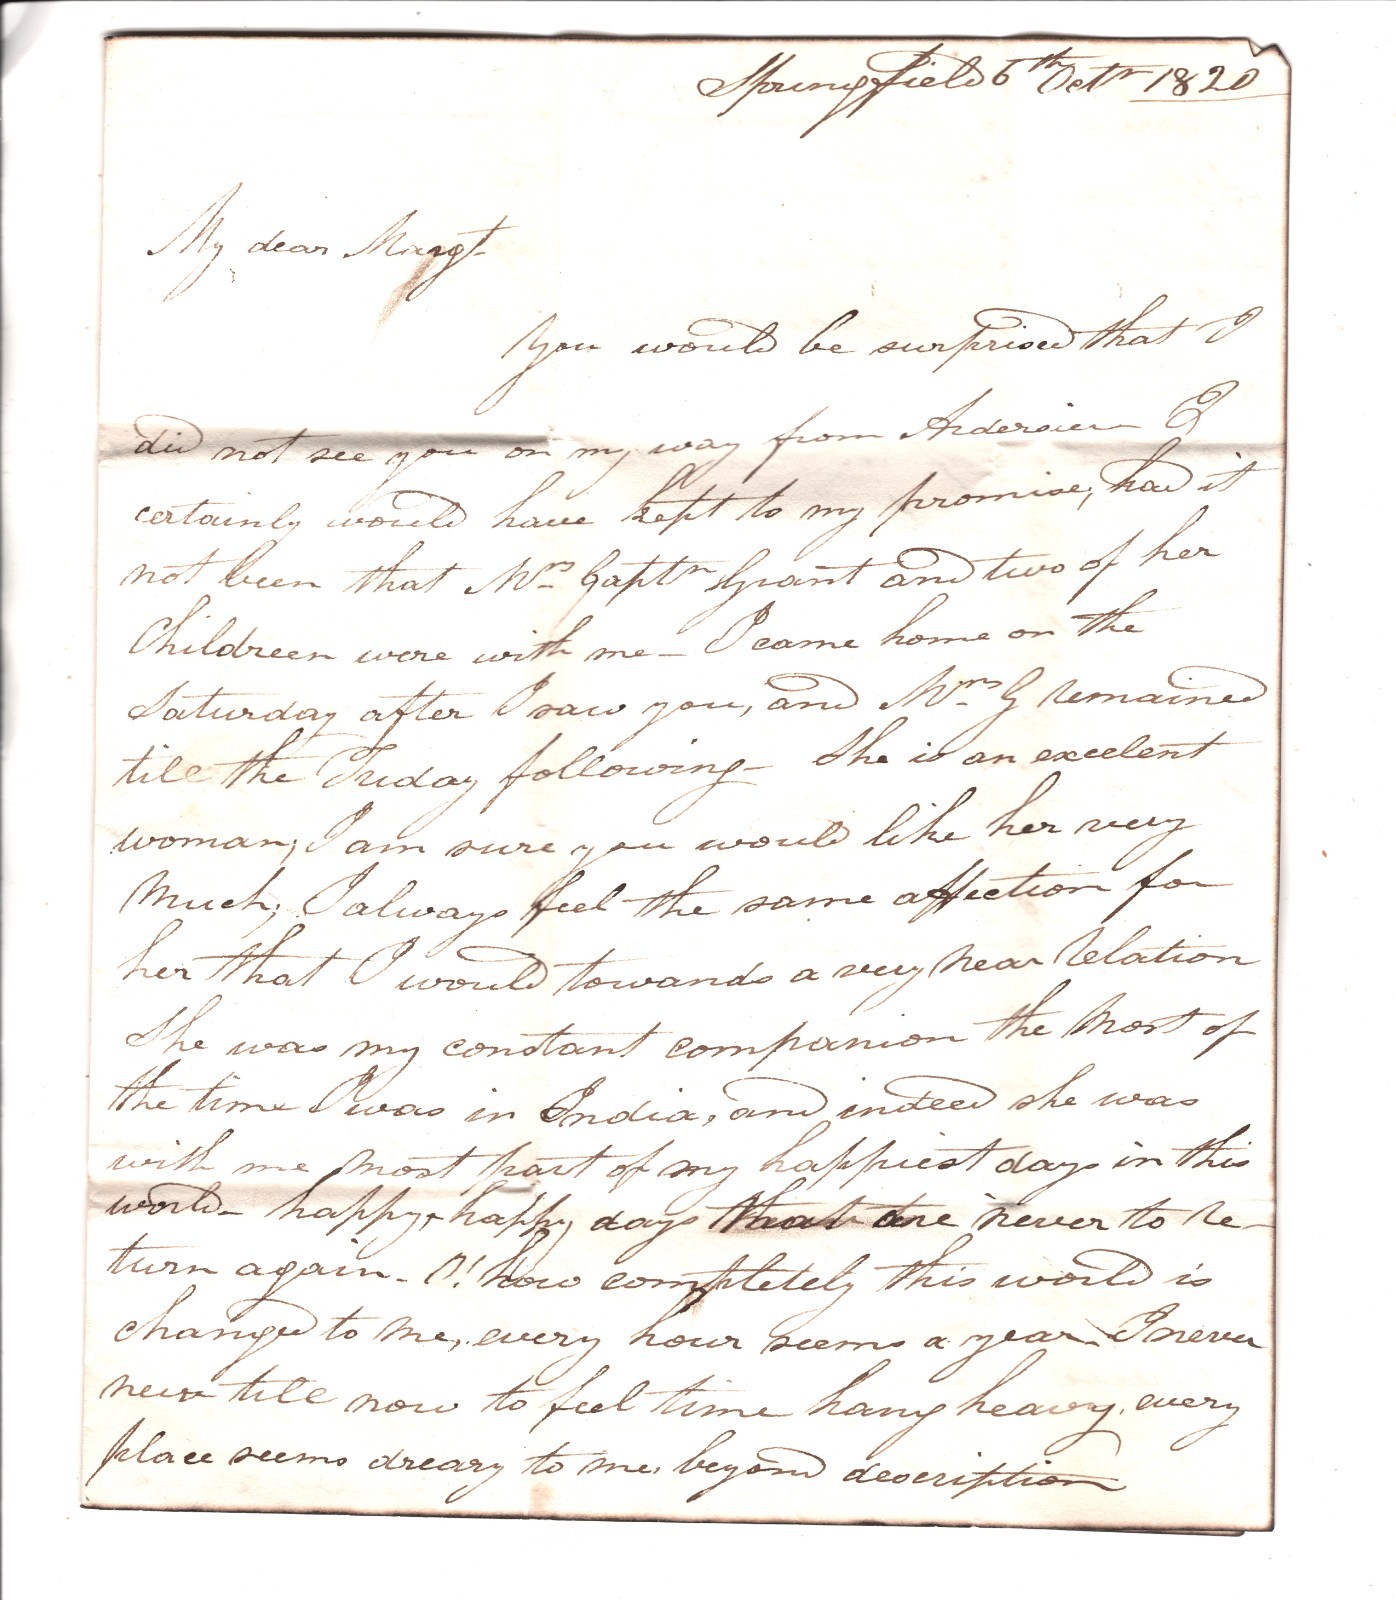 Springfield 6th Octr 1820
My dear Margt
You would be surprised that I
did not see you on my way from Ardersier I
certainly would have kept to my promise, had it
not been that Mrs Captn Grant and two of her
Childreen were with me - I came home on the
Saturday after I saw you, and Mrs G remained
till the Friday following - She is an excelent
woman, I am sure you would like her very
Much, I always feel the same affection for
her that I would towards a very Near Relation
She was my constant companion the Most of
the time I was in India, and indeed she was
with me Most part of my happiest days in this
world - happy, happy days that are never to re-
turn again - O! how completely this world is
changed to Me, every hour seems a year - I never
new till now to feel time hang heavy, every
place seems dreary to me, beyond description